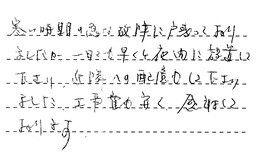 寒い時期の急な故障に戸惑っており
ましたが一日でも早くと夜間に設置して
下さり、近隣への配慮もして下さり
ました。工事費も安く、感謝して
おります。